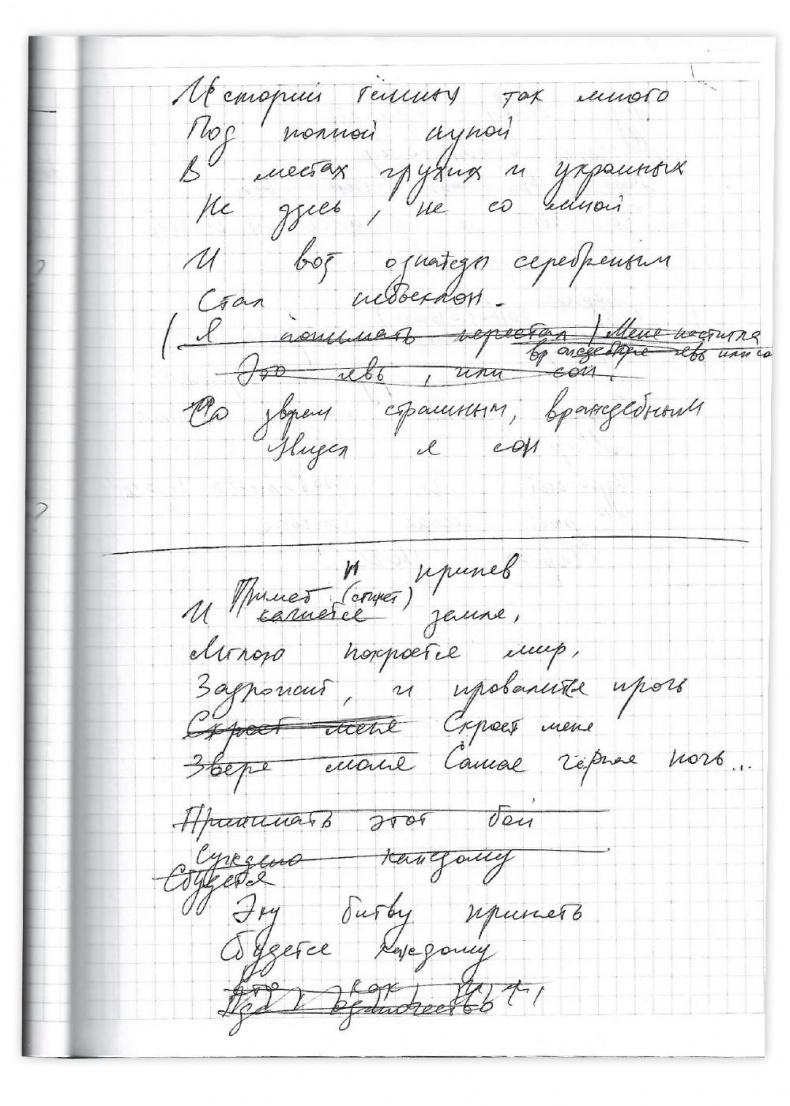 Историй тёмных так много
Под полной луной
В местах глухих и укромных
Не здесь, не со мной
И вот однажды серебреным
Стал небосклон.
Я понимать перестал / Меня настигла
явь или со
Это явь, или сон.
Со зверем страшным, враждебным
Увидел я сон
припев
Примет (стирет)
И качнется земля,
Мглою покроется мир,
Задрожит, и провалится прочь
Скроет меня Скроет меня
Зверя моля Самая чёрная ночь...
Принимать этот бой
Суждено каждому
Сбудется
Эту битву принять
Сбудется каждому
это как
одиночество